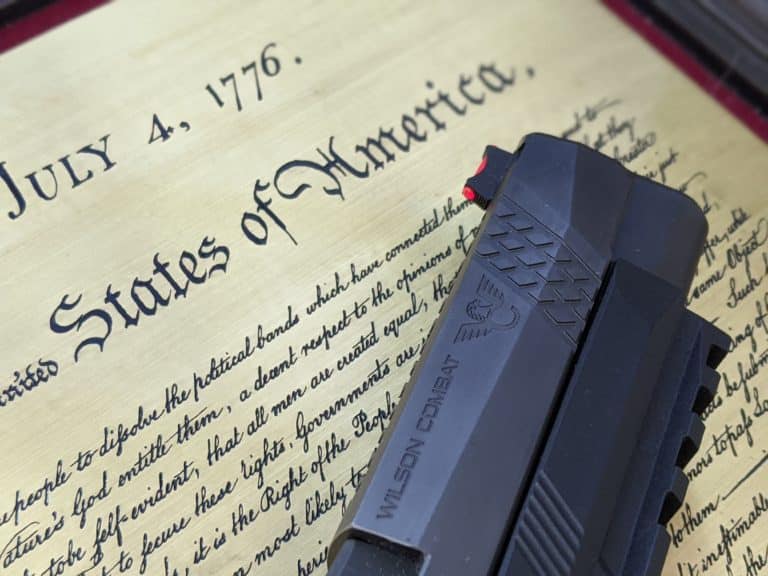 JULY 4, 1776.
States of America,
people to diſsolve the political bands which have connected them
God entitle them, a decent respect to the opinions of
to be ſelf-evident, that all men are created equal,
to secure these rights, Governments are
it is the Right of the People
most likely to
they
just
while
same Object
Such
of
to them
of the
WILSON COMBAT